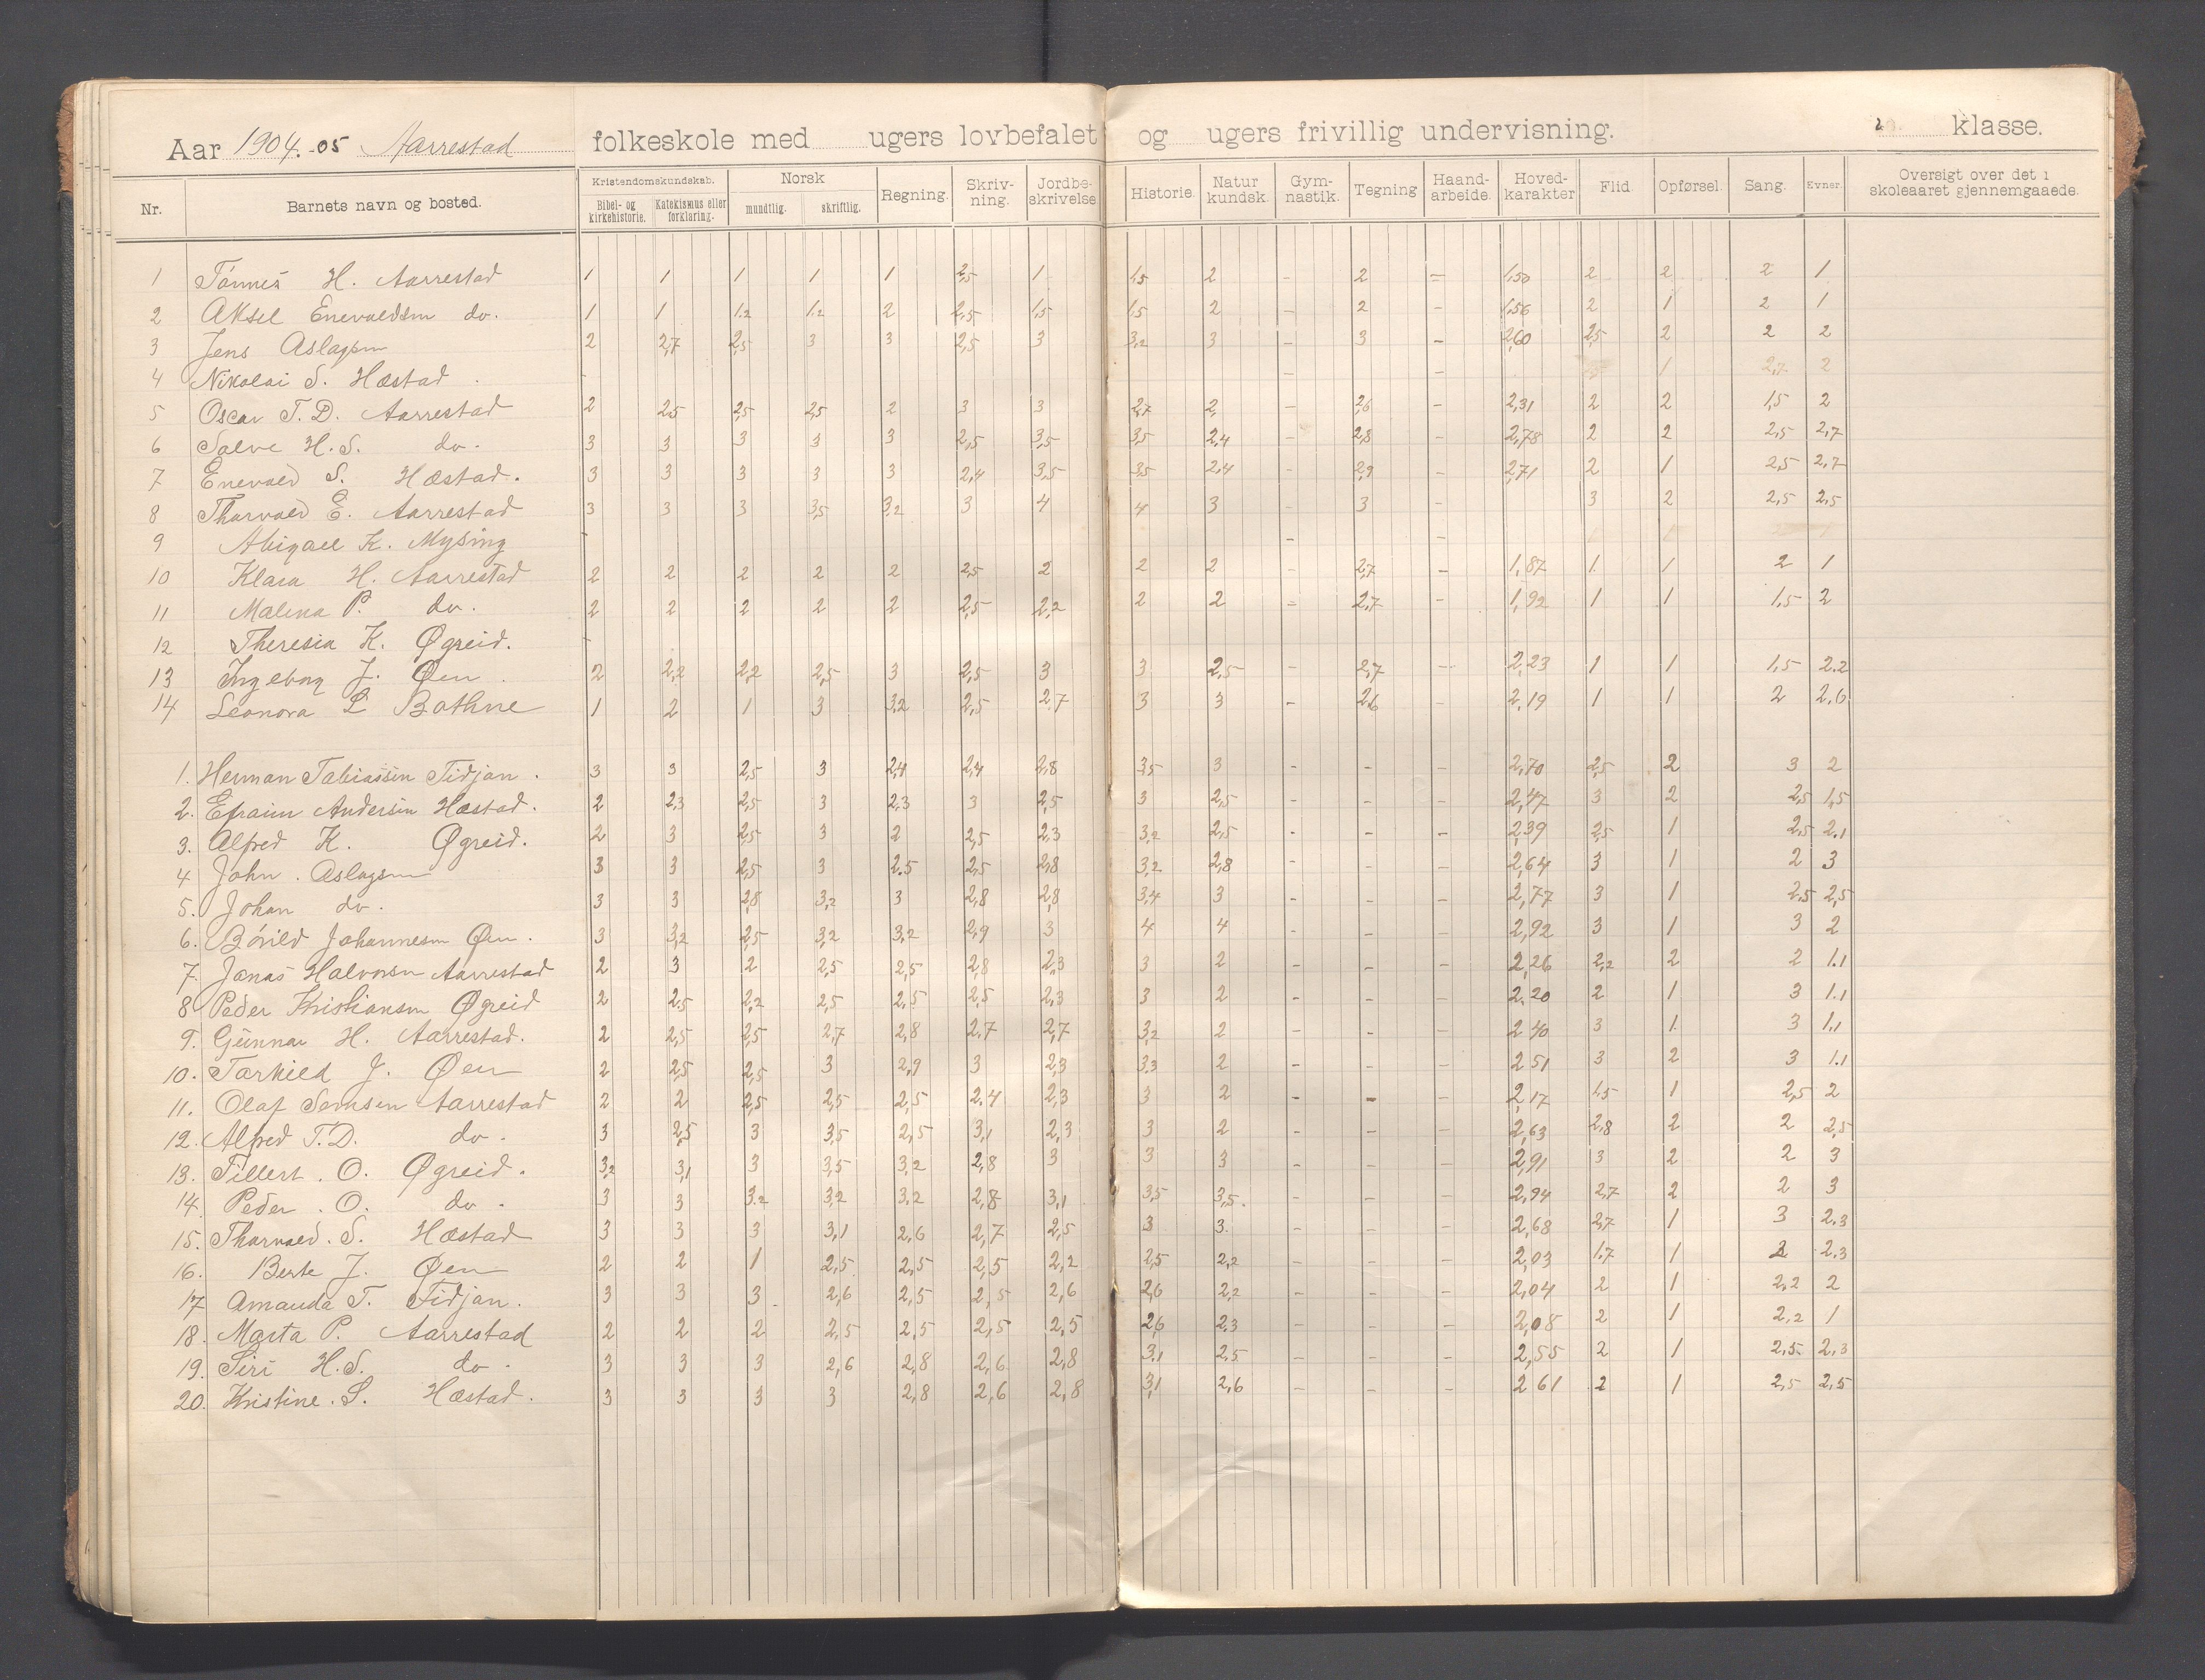 Aar 1904.-05 Aarrestad folkeskole med ugers lovbefalet og ugers frivillig undervisning. klasse.
Nr. Barnets navn og bosted. Kristendomskundskab. Bibel- og kirkehistorie. Katekismus eller forklaring. Norsk mundtlig. skriftlig. Regning. Skriv-ning. Jordbe-skrivelse Historie. Natur kundsk. Gym-nastik. Tegning Haand-arbeide. Hoved-karakter Flid. Opførsel. Sang. Evner. Oversigt over det i skoleaaret gjennemgaaede.
1 Tønnes H. Aarrestad 1 1 1 1 1 2,5 1 1,5 2 - 2 = 1,50 2 2 2 1
2 Aksel Enevaldsen do. 1 1 1.2 1.2 2 2,5 1,5 1,5 2 - 2 - 1,56 2 1 2 1
3 Jens Aslagsen 2 2,7 2,5 3 3 2,5 3 3,2 3 - 3 - 2,60 2,5 2 2 2
4 Nikolai S. Hæstad - - - 1 2,7 2
5 Oscar T.D. Aarrestad 2 2,5 2,5 2,5 2 3 3 2,7 2, - 2,6 - 2,31 2 2 1,5 2
6 Salve H.S. do. 3 3 3 3 3 2,5 3,5 3,5 2,4 - 2,8 - 2,78 2 2 2,5 2,7
7 Enevald S. Hæstad. 3 3 3 3 3 2,4 3,5 3,5 2,4 - 2,9 - 2,71 2 1 2,5 2,7
8 Thorvald E. Aarrestad 3 3 3 3,5 3,2 3 4 4 3 - 3 - 3 2 2,5 2,5
9 Abigael K. Mysing - - -
10 Klara H. Aarrestad 2 2 2 2 2 2,5 2 2 2 - 2,7 - 1,87 1 1 2 1
11 Malena P. do. 2 2 2 2 2 2,5 2,2 2 2 - 2,7 - 1,92 1 1 1,5 2
12 Theresia K. Øgreid. -
13 Ingeborg J. Øen 2 2,2 2,2 2,5 3 2,5 3 3 2,5 - 2,7 - 2,23 1 1 1,5 2.2
14 Leonora L Bathne 1 2 1 3 3,2 2,5 2,7 3 3 - 2,6 - 2,19 1 1 2 2.6
1. Herman Tabiassen Tidjan. 3 3 2,5 3 2,4 2,4 2,8 3,5 3 - - - 2,70 2,5 2 3 2
2. Efraim Andersen Hæstad. 2 2,3 2,5 3 2.3 3 2,5 3 2,5 - - - 2,47 3 2 2,5 1,5
3. Alfred K. Øgreid. 2 3 2,5 3 2 2,5 2,3 3,2 2,5 - - - 2,39 2,5 1 2,5 2.1
4 John. Aslagsen 3 3 2,5 3 2.5 2,5 2,8 3,2 2,8 - - - 2,64 3 1 2 3
5. Johan do. 3 3 2,8 3,2 3 2,8 2,8 3,4 3 - - - 2,77 3 1 2,5 2,5
6. Bórild Johannesen Øen. 3 3,2 2,5 3,2 3,2 2,9 3 4 4 - - - 2,92 3 1 3 2
7. Jonas Halvorsen Aarrestad 2 3 2 2,5 2,5 2,8 2,3 3 2 - - - 2,26 2,2 2 2 1.1
8 Peder Kristiansen Øgreid 2 2,5 2,2 2,5 2.5 2,5 2,3 3 2 - - - 2.20 2 1 3 1.1
9. Gunnar H. Aarrestad. 2 2,5 2,5 2,7 2,8 2.7 2,7 3,2 2 - - - 2 40 3 1. 3 1,1
10. Tarkield J. Øen 2 2,5 2,5 3 2,9 3 2,3 3,3 2 - - - 2 51 3 2 3 1.1
11. Olaf Semsen Aarrestad 2 2 2,5 2,5 2,5 2.4 2,3 3 2 - - - 2,17 1,5 1 2,5 2
12. Alfred T.D. do. 3 2,5 3 3,5 2,5 3,1 2,3 3 2 - - - 2,63 2,8 2 2 2,5
13. Tillert. O. Øgreid. 3,2 3,1 3 3,5 3,2 2,8 3 3 3 - - - 2,91 3 2 2 3
14. Peder. O. do. 3 3 3.2 3,2 3,2 2,8 3,1 3,5 3,5. - - - 2,94 2,7 2 2 3
15. Thorvald. S. Hæstad 3 3 3 3,1 2,6 2,7 2,5 3 3. - - - 2,68 2,7 1 3 2.3
16. Berte J. Øen 2 2 1 2,5 2,5 2,5 2,2 2,5 2,2 - - - 2,03 1.7 1 2 2.3
17 Amanda T. Tidjan. 3 3 3 2,6 2,5 2,5 2,6 2,6 2,2 - - - 2,04 2 1 2,2 2
18. Marta P. Aarrestad 2 2 2 2,5 2,5 2,5 2,5 2,6 2.3 - - - 2,08 2 1 2,2 1
19. Siri H.S. do. 3 3 3 2,6 2,8 2,6 2,8 3,1 2.5 - - - 2,55 2 1 2,5 2.3
20. Kristine. S. Hæstad. 3 3 3 3 2,8 2,6 2,8 3,1 2,6 - - - 2 61 2 1 2,5 2,5